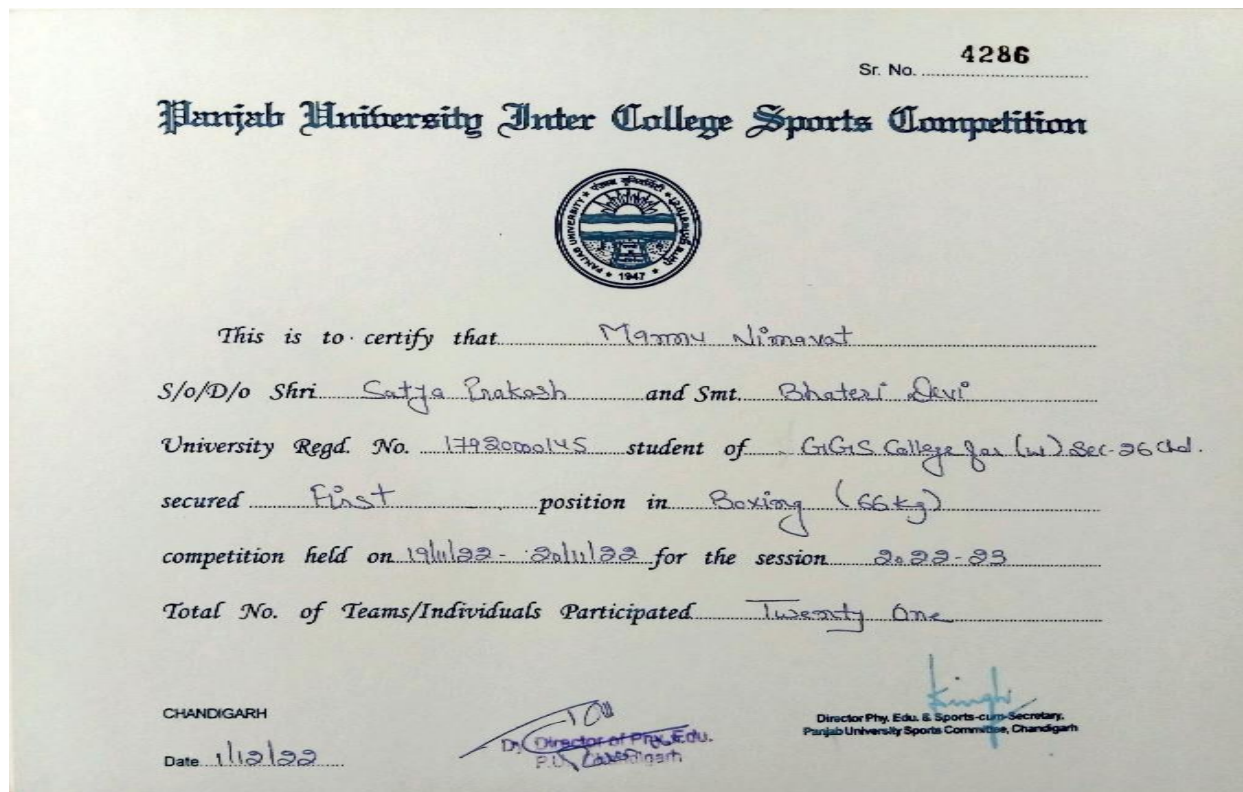 Sr. No. 4286
Panjab University Inter College Sports Competition
PANJAB UNIVERSITY
1947
This is to certify that Mannu Nimavat
S/o/D/o Shri Satya Prakash and Smt. Bhateri Devi
University Regd. No. 17920000145 student of GGS College for (w) Sec-26 Chd.
secured First position in Boxing (66kg)
competition held on 19/11/22 - 20/11/22 for the session 2022-23
Total No. of Teams/Individuals Participated Twenty One
CHANDIGARH
Date 1/12/22
Dy. Director of Phy. Edu.
P.U. Chandigarh
Director Phy. Edu. & Sports-cum-Secretary,
Panjab University Sports Committee, Chandigarh